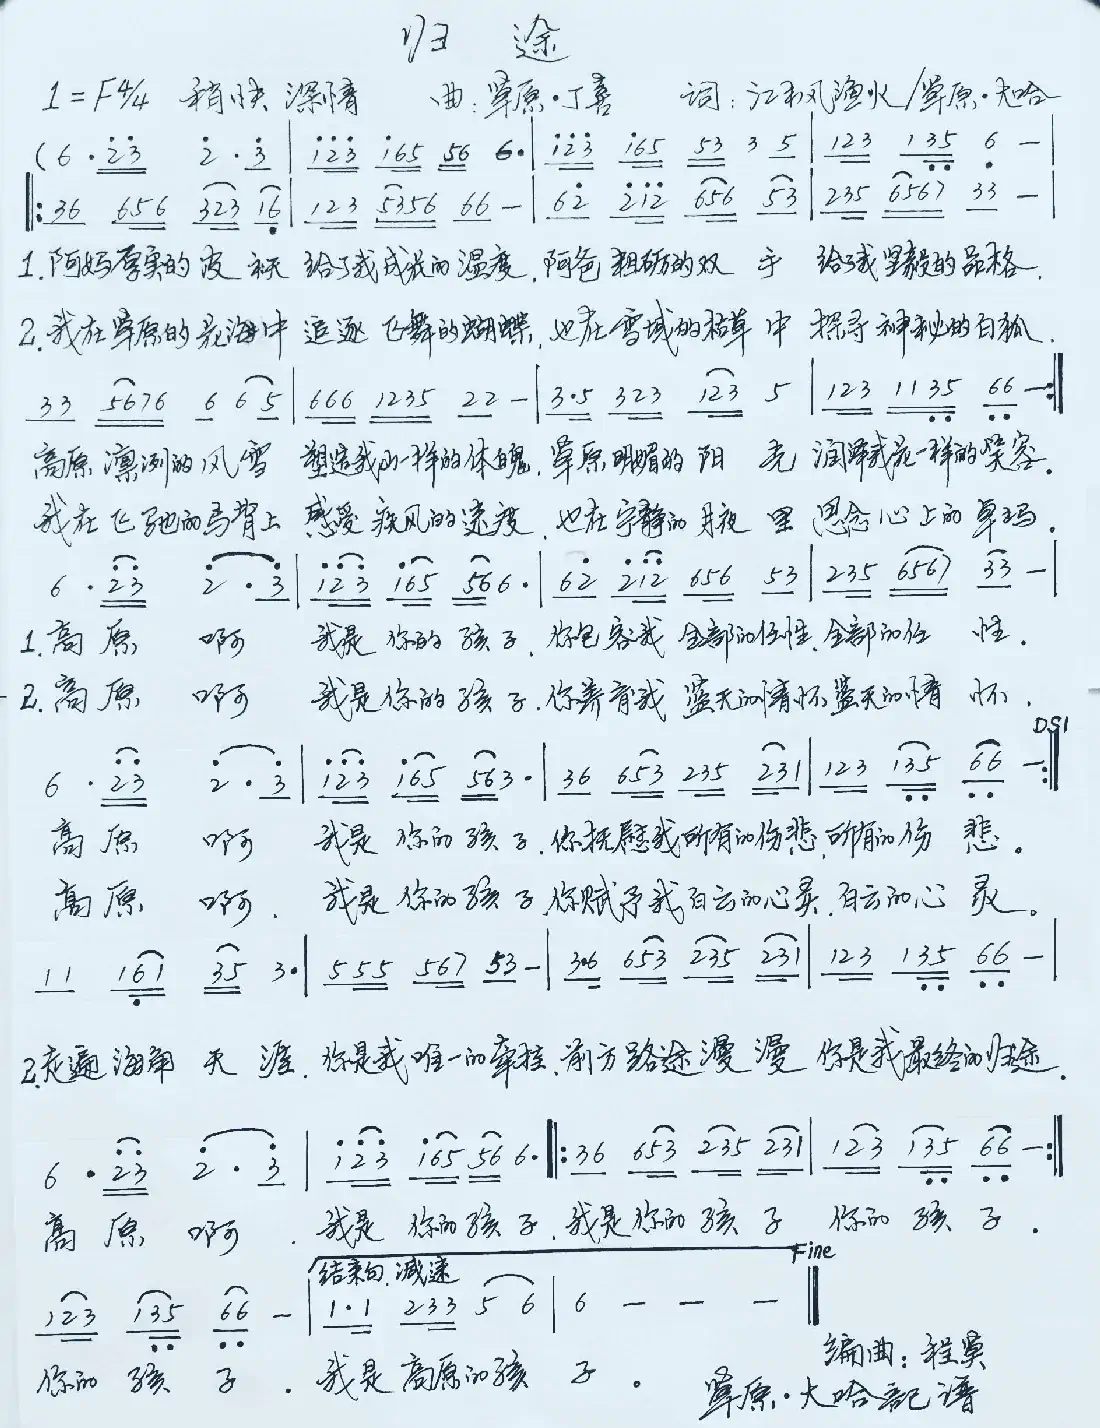 归 途
1=F4/4 稍快 深情 曲:草原·丁喜 词:江枫渔火/草原·大哈
(6·23 2·3 | 123 165 56 6· | 123 165 53 3 5 | 123 135 6 — |
‖: 36 656 323 16 | 123 5356 66 — | 62 212 656 53 | 235 6567 33 — |
1.阿妈厚实的皮袄 给了我成长的温度,阿爸粗砺的双 手 给了我坚毅的品格.
2.我在草原的花海中 追逐 飞舞的蝴蝶,也在雪域的枯草 中 探寻 神秘的白狐.
33 5676 6 65 | 666 1235 22 — | 3·5 323 123 5 | 123 1135 66 — :‖
高原 凛冽的风雪 塑造我山一样的体魄,草原明媚的 阳 光 润泽我花一样的笑容.
我在飞驰的马背上 感受 疾风的速度,也在宁静的月夜 里 思念心上的卓玛.
6·23 2·3 | 123 165 56 6· | 62 212 656 53 | 235 6567 33 — |
1.高原 啊 我是 你的 孩子,你包容我 全部的任性,全部的任 性.
2.高原 啊 我是 你的 孩子,你养育我 蓝天的情怀,蓝天的情 怀.
DS1
6·23 2·3 | 123 165 563· | 36 653 235 231 | 123 135 66 — :‖
高原 啊 我是 你的 孩子,你抚慰我所有的伤悲,所有的伤 悲。
高原 啊. 我是 你的 孩子,你赋予我白云的心灵,白云的心 灵。
11 161 35 3· | 555 567 53 — | 3·6 653 235 231 | 123 135 66 — |
2.走遍海角 天 涯,你是我唯一的牵挂,前方路途漫 漫 你是我最终的归途.
6·23 2·3 | 123 165 56 6· ‖: 36 653 235 231 | 123 135 66 — :‖
高原 啊. 我是 你的孩子,我是你的 孩子 你的 孩 子.
结束句.减速 Fine
123 135 66 — | 1·1 233 5 6 | 6 — — — ‖
你的 孩 子. 我是高原的孩 子。
编曲:程昊
草原·大哈记谱